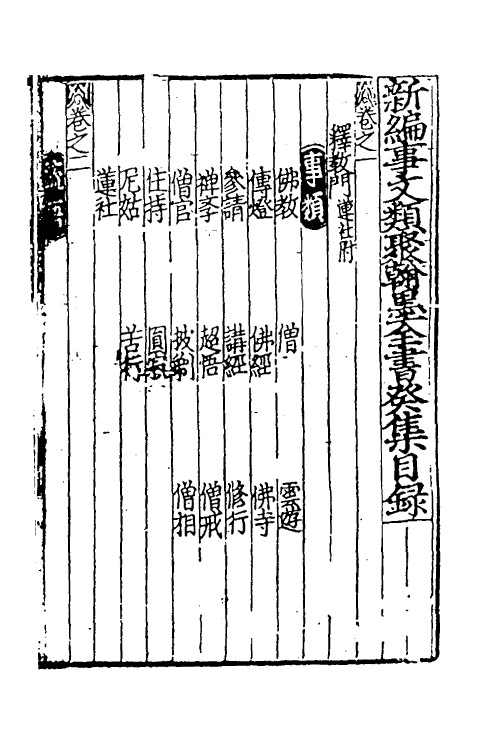 新編事文類聚翰墨全書癸集目錄
卷之一
釋教門 蓮社附
事類
佛教 僧 雲遊
傳燈 佛經 佛寺
參請 講經 修行
禅李 超悟 僧戒
僧官 披剃 僧相
住持 圓寂
尼姑 苦行
蓮社
卷之二